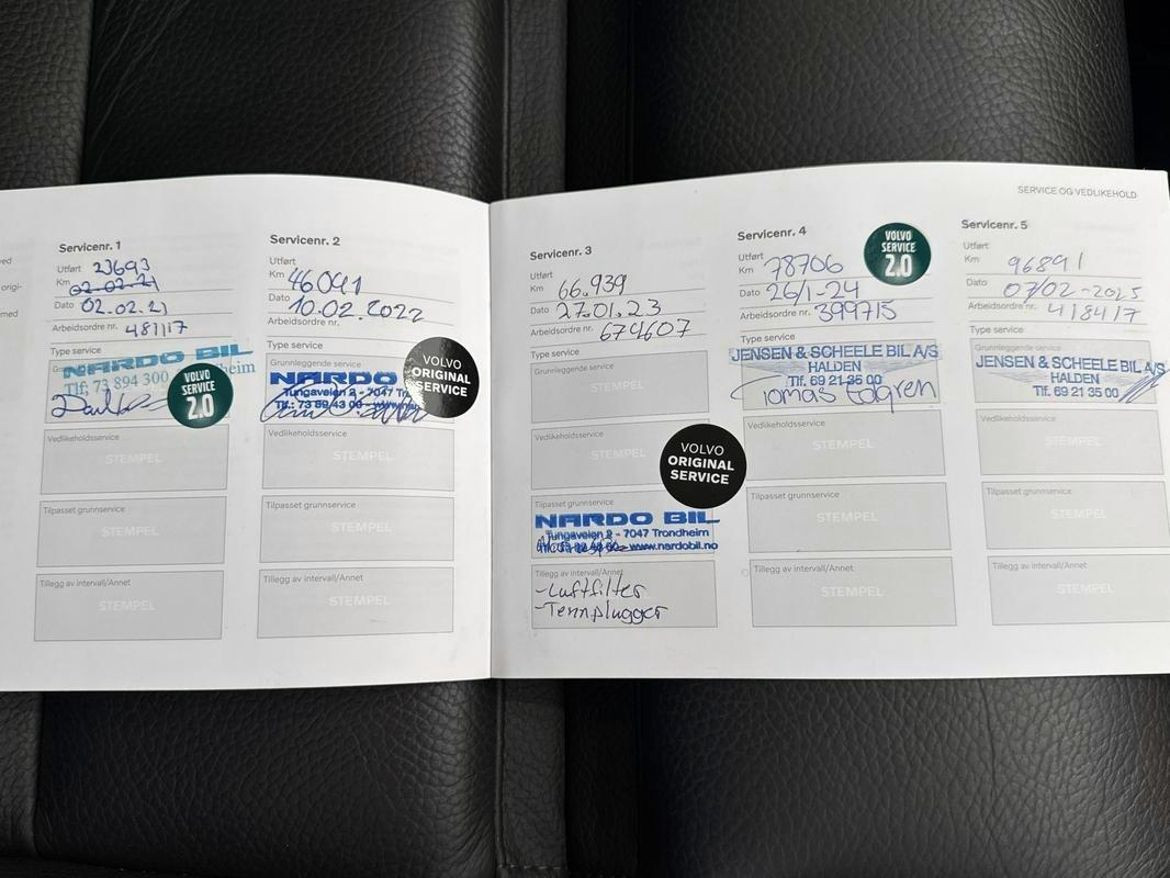 SERVICE OG VEDLIKEHOLD
ved
origi-
med
Servicenr. 1
Utført 23693
Km 02.02.21
Dato 02.02.21
Arbeidsordre nr. 481117
Type service
NARDO BIL
Tlf; 73 894 300
VOLVO
SERVICE
2.0
Vedlikeholdsservice
STEMPEL
Tilpasset grunnservice
STEMPEL
Tillegg av intervall/Annet
STEMPEL
Servicenr. 2
Utført
Km 46041
Dato 10.02.2022
Arbeidsordre nr.
Type service
Grunnleggende service
NARDO
Tungaveien 2 - 7047
VOLVO
ORIGINAL
SERVICE
Vedlikeholdsservice
STEMPEL
Tilpasset grunnservice
STEMPEL
Tillegg av intervall/Annet
STEMPEL
Servicenr. 3
Utført
Km 66.939
Dato 27.01.23
Arbeidsordre nr. 674607
Type service
Grunnleggende service
STEMPEL
Vedlikeholdsservice
STEMPEL
VOLVO
ORIGINAL
SERVICE
Tilpasset grunnservice
NARDO BIL
Tungaveien 2 - 7047 Trondheim
www.nardobil.no
Tillegg av intervall/Annet
-Luftfilter
-Tennplugger
Servicenr. 4
Utført
Km 78706
VOLVO
SERVICE
2.0
Dato 26/1-24
Arbeidsordre nr. 399715
Type service
JENSEN & SCHEELE BIL A/S
HALDEN
Tlf. 69 21 35 00
Tomas
Vedlikeholdsservice
STEMPEL
Tilpasset grunnservice
STEMPEL
Tillegg av intervall/Annet
STEMPEL
Servicenr. 5
Utført
Km 96891
Dato 07/02-2025
Arbeidsordre nr. 418417
Type service
Grunnleggende service
JENSEN & SCHEELE BIL A/S
HALDEN
Tlf. 69 21 35 00
Vedlikeholdsservice
STEMPEL
Tilpasset grunnservice
STEMPEL
Tillegg av intervall/Annet
STEMPEL